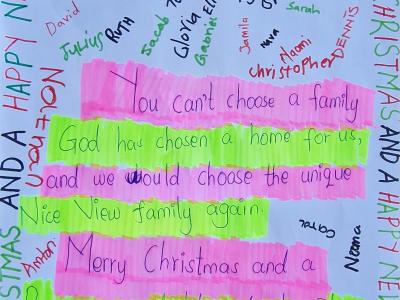 David
Julius
RUTH
Jacob
Gloria
Gabriel
Jamila
Nava
Sarah
Naomi
DENNIS
Christopher
You can't choose a family
God has chosen a home for us,
and we would choose the unique
Nice View family again.
Merry Christmas and a
Anton
Carol
Neema
STMAS AND A HAPPY N
CHRISTMAS AND A HAPPY NEW